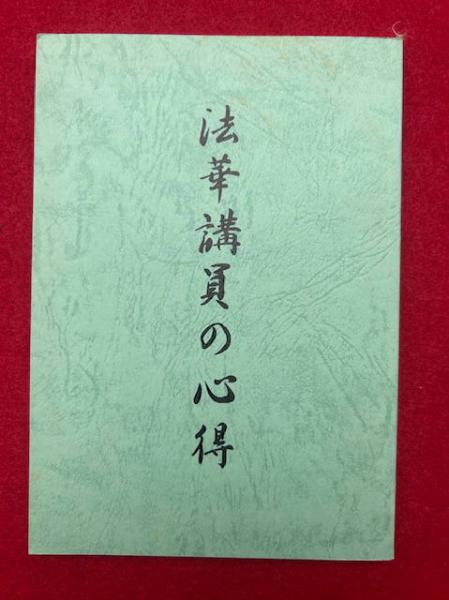 法華講員の心得